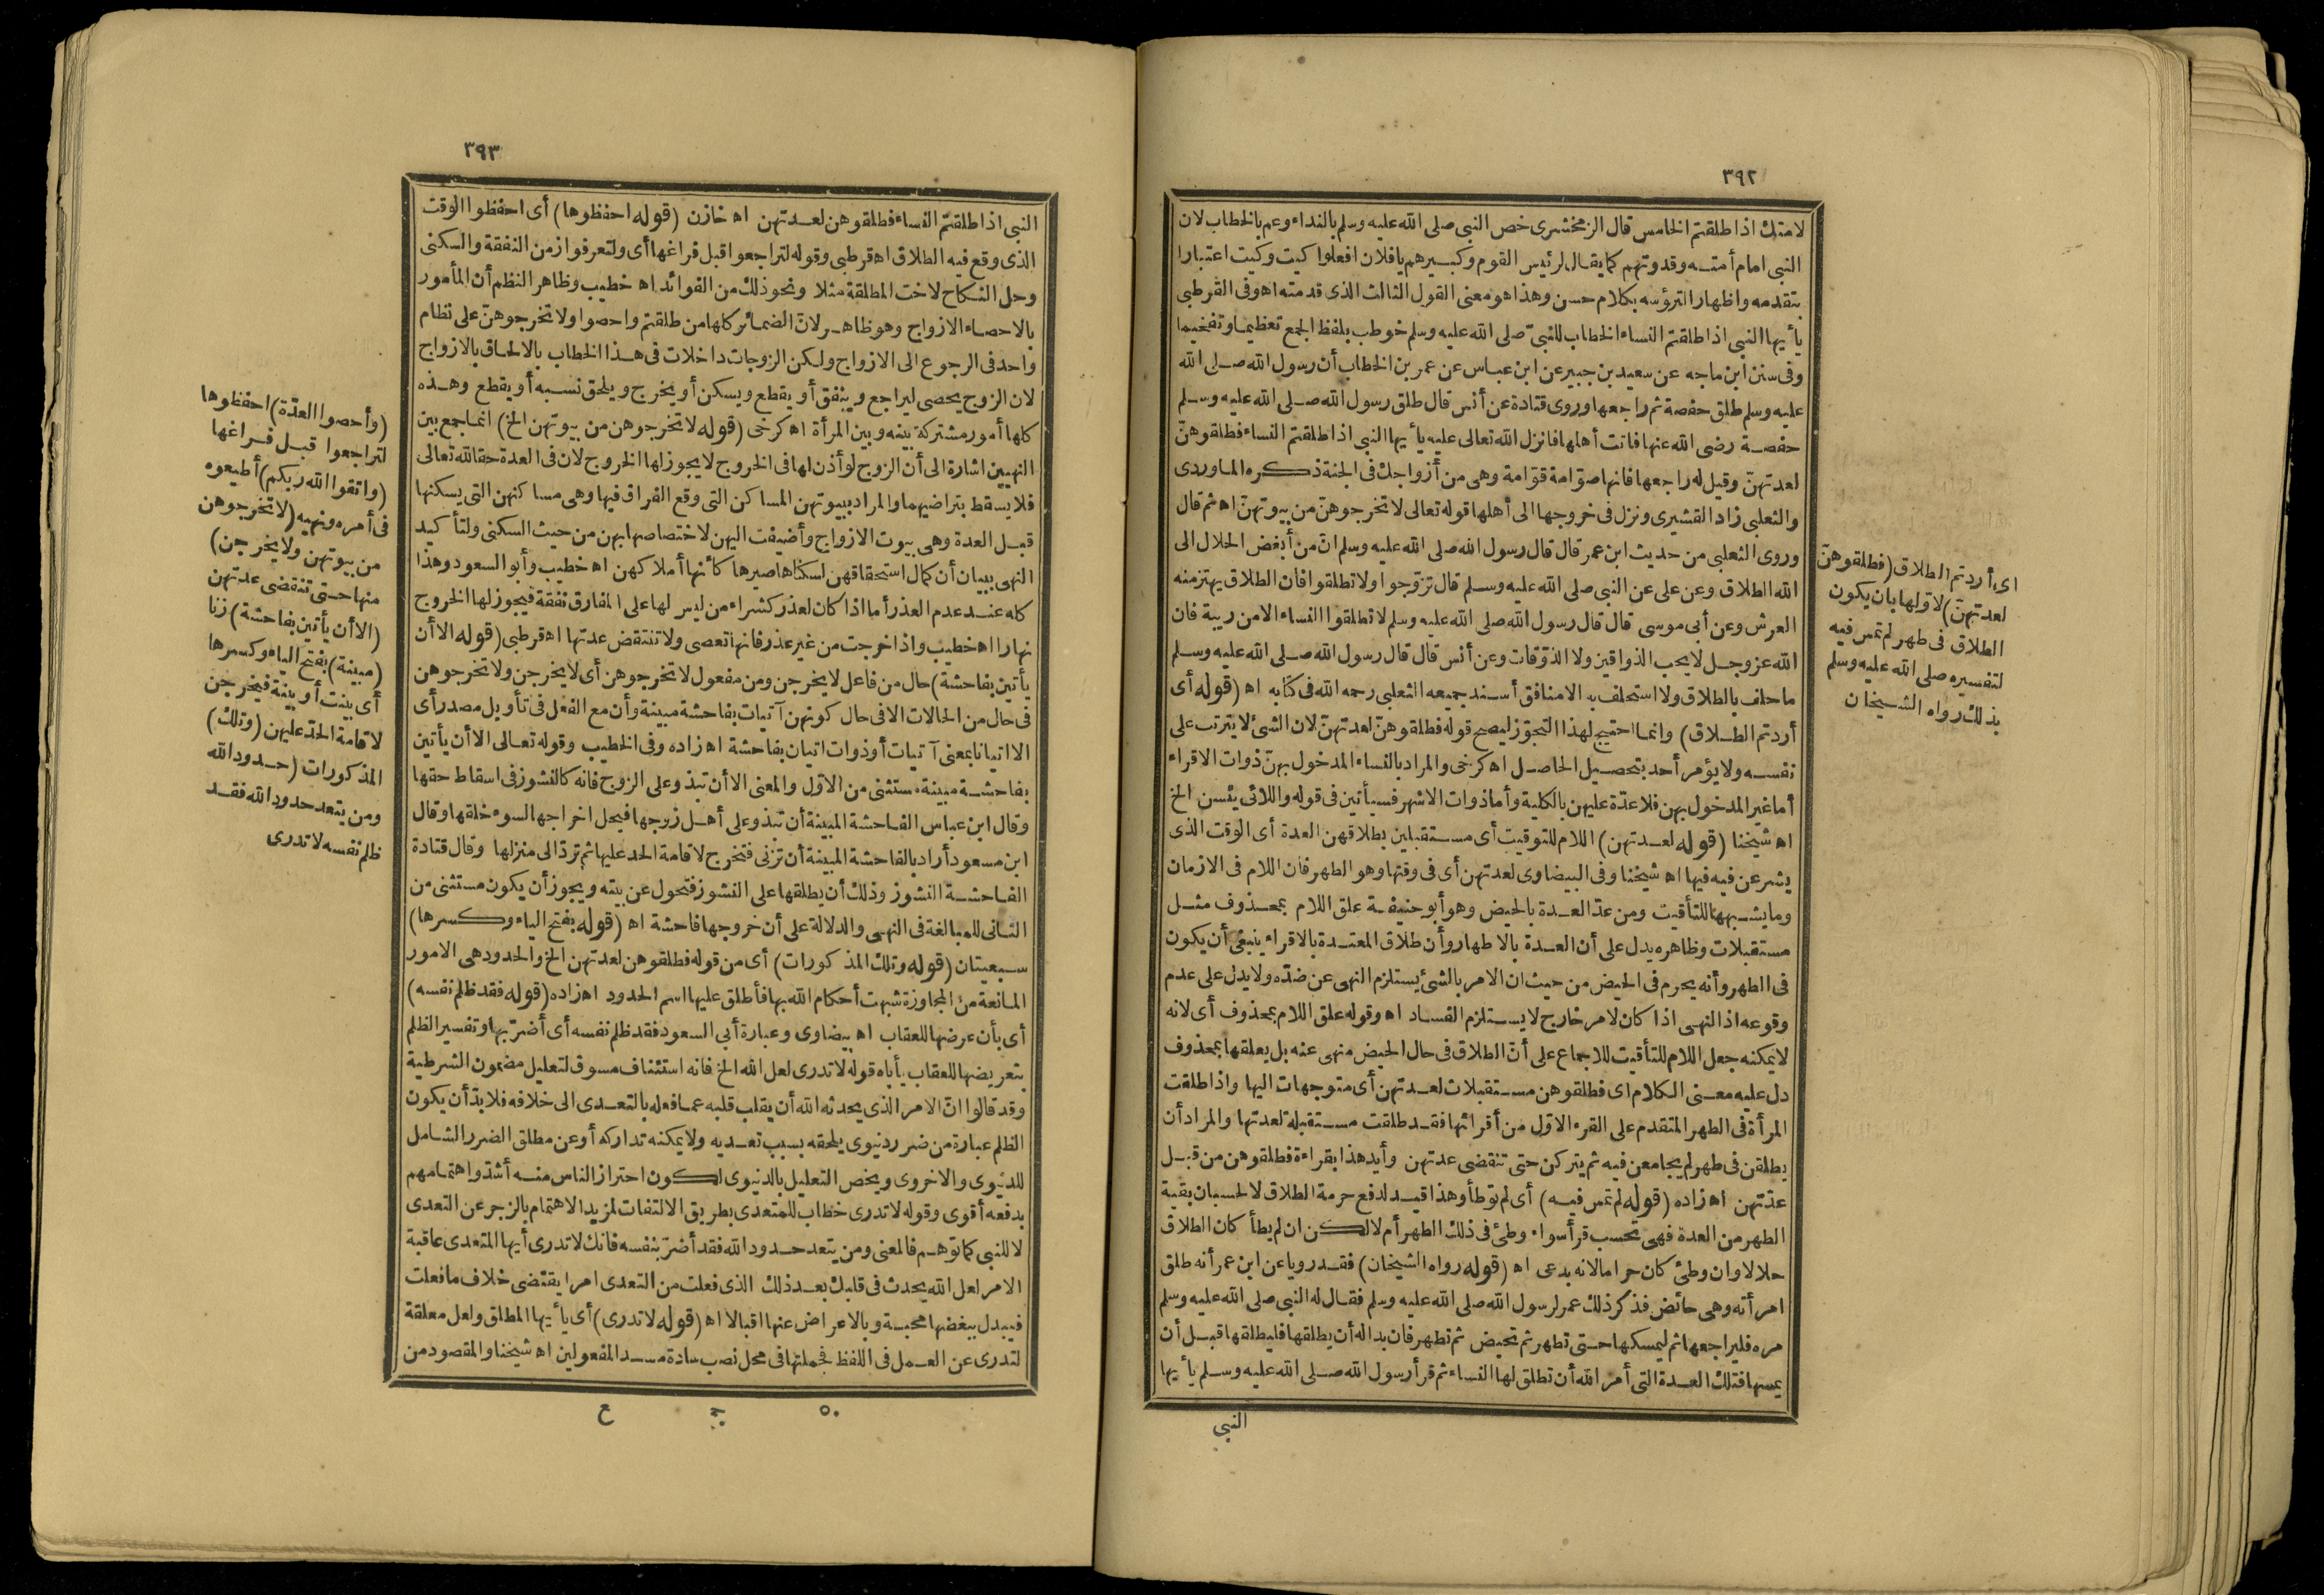 ٣٩٢
لامتك اذا طلقتم الخامس قال الزمخشرى خص النبى صلى الله عليه وسلم بالنداء وعم بالخطاب لان
النبى امام أمته وقدوتهم كما يقال لرئيس القوم وكبيرهم يا فلان افعلوا كيت وكيت اعتبارا
بتقدمه واظهارا لترؤسه بكلام حسن وهذا هو معنى القول الثالث الذى قدمته اه وفى القرطبى
يأيها النبى اذا طلقتم النساء الخطاب للنبىّ صلى الله عليه وسلم خوطب بلفظ الجمع تعظيما وتفخيما
وفى سنن ابن ماجه عن سعيد بن جبير عن ابن عباس عن عمر بن الخطاب أن رسول الله صلى الله
عليه وسلم طلق حفصة ثم راجعها وروى قتادة عن أنس قال طلق رسول الله صلى الله عليه وسلم
حفصة رضى الله عنها فاتت أهلها فانزل الله تعالى عليه يأيها النبى اذا طلقتم النساء فطلقوهنّ
لعدتهنّ وقيل له راجعها فانها صوّامة قوّامة وهى من أزواجك فى الجنة ذكره الماوردى
والثعلبى زاد القشيرى ونزل فى خروجها الى أهلها قوله تعالى لا تخرجوهنّ من بيوتهنّ اه ثم قال
وروى الثعلبى من حديث ابن عمر قال قال رسول الله صلى الله عليه وسلم انّ من أبغض الحلال الى
الله الطلاق وعن على عن النبى صلى الله عليه وسلم قال تزوّجوا ولا تطلقوا فان الطلاق يهتز منه
العرش وعن أبى موسى قال قال رسول الله صلى الله عليه وسلم لا تطلقوا النساء الا من ريبة فان
الله عز وجل لا يحب الذواقين ولا الذوّقات وعن أنس قال قال رسول الله صلى الله عليه وسلم
ما حلف بالطلاق ولا استحلف به الا منافق أسند جميعه الثعلبى رحمه الله فى كتابه اه (قوله أى
أردتم الطلاق) وانما احتيج لهذا التجوّز ليصح قوله فطلقوهنّ لعدتهنّ لان الشئ لا يترتب على
نفسه ولا يؤمر أحد بتحصيل الحاصل اه كرخى والمراد بالنساء المدخول بهنّ ذوات الاقراء
أما غير المدخول بهن فلا عدّة عليهن بالكلية وأما ذوات الاشهر فسيأتين فى قوله واللائى يئسن الخ
اه شيخنا (قوله لعدتهن) اللام للتوقيت أى مستقبلين بطلاقهن العدة أى الوقت الذى
يشرعن فيه فيها اه شيخنا وفى البيضاوى لعدتهن أى فى وقتها وهو الطهر فان اللام فى الازمان
وما يشبهها للتأقيت ومن عدّ العدة بالحيض وهو أبو حنيفة علق اللام بمحذوف مثل
مستقبلات وظاهره يدل على أن العدة بالاطهار وأن طلاق المعتدة بالاقراء ينبغى أن يكون
فى الطهر وأنه يحرم فى الحيض من حيث ان الامر بالشئ يستلزم النهى عن ضدّه ولا يدل على عدم
وقوعه اذ النهى اذا كان لامر خارج لا يستلزم الفساد اه وقوله علق اللام بمحذوف أى لانه
لا يمكنه جعل اللام للتأقيت للاجماع على أنّ الطلاق فى حال الحيض منهى عنه بل يعلقها بمحذوف
دل عليه معنى الكلام اى فطلقوهن مستقبلات لعدتهن أى متوجهات اليها واذا طلقت
المرأة فى الطهر المتقدم على القرء الاوّل من أقرائها فقد طلقت مستقبلة لعدتها والمراد أن
يطلقن فى طهر لم يجامعن فيه ثم يتركن حتى تنقضى عدتهن وأيد هذا بقراءة فطلقوهن من قبل
عدّتهن اه زاده (قوله لم تمس فيه) أى لم توطأ وهذا قيد لدفع حرمة الطلاق لا لحسبان بقية
الطهر من العدة فهى تحسب قرأ سواء وطئ فى ذلك الطهر أم لا لكن ان لم يطأ كان الطلاق
حلالا وان وطئ كان حراما لانه بدعى اه (قوله رواه الشيخان) فقد رويا عن ابن عمر أنه طلق
امرأته وهى حائض فذكر ذلك عمر لرسول الله صلى الله عليه وسلم فقال له النبى صلى الله عليه وسلم
مره فليراجعها ثم ليمسكها حتى تطهر ثم تحيض ثم تطهر فان بدا له أن يطلقها فليطلقها قبل أن
يمسها فتلك العدة التى أمر الله أن تطلق لها النساء ثم قرأ رسول الله صلى الله عليه وسلم يأيها
النبى
اى أردتم الطلاق (فطلقوهنّ
لعدتهنّ) لاوّلها بان يكون
الطلاق فى طهر لم تمس فيه
لتفسيره صلى الله عليه وسلم
بذلك رواه الشيخان
٣٩٣
النبى اذا طلقتمّ النساء فطلقوهن لعدتهن اه خازن (قوله احفظوها) أى احفظوا الوقت
الذى وقع فيه الطلاق اه قرطبى وقوله لتراجعوا قبل فراغها أى ولتعرفوا زمن النفقة والسكنى
وحل النكاح لاخت المطلقة مثلا ونحو ذلك من الفوائد اه خطيب وظاهر النظم أن المأمور
بالاحصاء الازواج وهو ظاهر لانّ الضمائر كلها من طلقتم واحصوا ولا تخرجوهنّ على نظام
واحد فى الرجوع الى الازواج ولكن الزوجات داخلات فى هذا الخطاب بالالحاق بالازواج
لان الزوج يحصى ليراجع وينفق أو يقطع ويسكن أو يخرج ويلحق نسبه أو يقطع وهذه
كلها أمور مشتركة بينه وبين المرأة اه كرخى (قوله لا تخرجوهن من بيوتهن الخ) انما جمع بين
النهيين اشارة الى أن الزوج لو أذن لها فى الخروج لا يجوز لها الخروج لان فى العدة حقا لله تعالى
فلا يسقط بتراضيهما والمراد ببيوتهن المساكن التى وقع الفراق فيها وهى مساكنهن التى يسكنها
قبل العدة وهى بيوت الازواج وأضيفت اليهن لاختصاصها بهن من حيث السكنى ولتأكيد
النهى ببيان أن كمال استحقاقهن لسكناها صيرها كأنها أملاكهن اه خطيب وأبو السعود وهذا
كله عند عدم العذر أما اذا كان لعذر كشراء من ليس لها على المفارق نفقة فيجوز لها الخروج
نهارا اه خطيب واذا خرجت من غير عذر فانها تعصى ولا تنتقض عدتها اه قرطبى (قوله الا أن
يأتين بفاحشة) حال من فاعل لا يخرجن ومن مفعول لا تخرجوهن أى لا يخرجن ولا تخرجوهن
فى حال من الحالات الا فى حال كونهن آتيات بفاحشة مبينة وأن مع الفعل فى تأويل مصدر أى
الا اتيانا بمعنى آتيات أو ذوات اتيان بفاحشة اه زاده وفى الخطيب وقوله تعالى الا أن يأتين
بفاحشة مبينة مستثنى من الاوّل والمعنى الا أن تبذو على الزوج فانه كالنشوز فى اسقاط حقها
وقال ابن عباس الفاحشة المبينة أن تبذو على أهل زوجها فيحل اخراجها لسوء خلقها وقال
ابن مسعود أراد بالفاحشة المبينة أن تزنى فتخرج لاقامة الحد عليها ثم تردّ الى منزلها وقال قتادة
الفاحشة النشوز وذلك أن يطلقها على النشوز فتحول عن بيته ويجوز أن يكون مستثنى من
الثانى للمبالغة فى النهى والدلالة على أن خروجها فاحشة اه (قوله بفتح الياء وكسرها)
سبعيتان (قوله وتلك المذكورات) أى من قوله فطلقوهن لعدتهن الخ والحدود هى الامور
المانعة من المجاوزة شبهت أحكام الله بها فأطلق عليها اسم الحدود اه زاده (قوله فقد ظلم نفسه)
أى بأن عرضها للعقاب اه بيضاوى وعبارة أبى السعود فقد ظلم نفسه أى أضرّ بها وتفسير الظلم
بتعريضها للعقاب يأباه قوله لا تدرى لعل الله الخ فانه استئناف مسوق لتعليل مضمون الشرطية
وقد قالوا انّ الامر الذى يحدثه الله أن يقلب قلبه عما فعله بالتعدى الى خلافه فلا بدّ أن يكون
الظلم عبارة من ضرر دنيوى يلحقه بسبب تعديه ولا يمكنه تداركه أو عن مطلق الضرر الشامل
للدنيوى والاخروى ويخص التعليل بالدنيوى لكون احتراز الناس منه أشدّ واهتمامهم
بدفعه أقوى وقوله لا تدرى خطاب للمتعدّى بطريق الالتفات لمزيد الاهتمام بالزجر عن التعدى
لا للنبى كما توهم فالمعنى ومن يتعد حدود الله فقد أضرّ بنفسه فانك لا تدرى أيها المتعدى عاقبة
الامر لعل الله يحدث فى قلبك بعد ذلك الذى فعلت من التعدى امرا يقتضى خلاف ما فعلت
فيبدل ببغضها محبة وبالاعراض عنها اقبالا اه (قوله لا تدرى) أى يأيها المطلق ولعل معلقة
لتدرى عن العمل فى اللفظ فجملتها فى محل نصب سادة مسد المفعولين اه شيخنا والمقصود من
٥٠ ح
(وأحصوا العدّة) احفظوها
لتراجعوا قبل فراغها
(واتقوا الله ربكم) أطيعوه
فى أمره ونهيه (لا تخرجوهن
من بيوتهن ولا يخرجن)
منها حتى تنقضى عدتهن
(الا أن يأتين بفاحشة) زنا
(مبينة) بفتح الياء وكسرها
أى بينت أو بينة فيخرجن
لاقامة الحدّ عليهن (وتلك)
المذكورات (حدود الله
ومن يتعد حدود الله فقد
ظلم نفسه لا تدرى